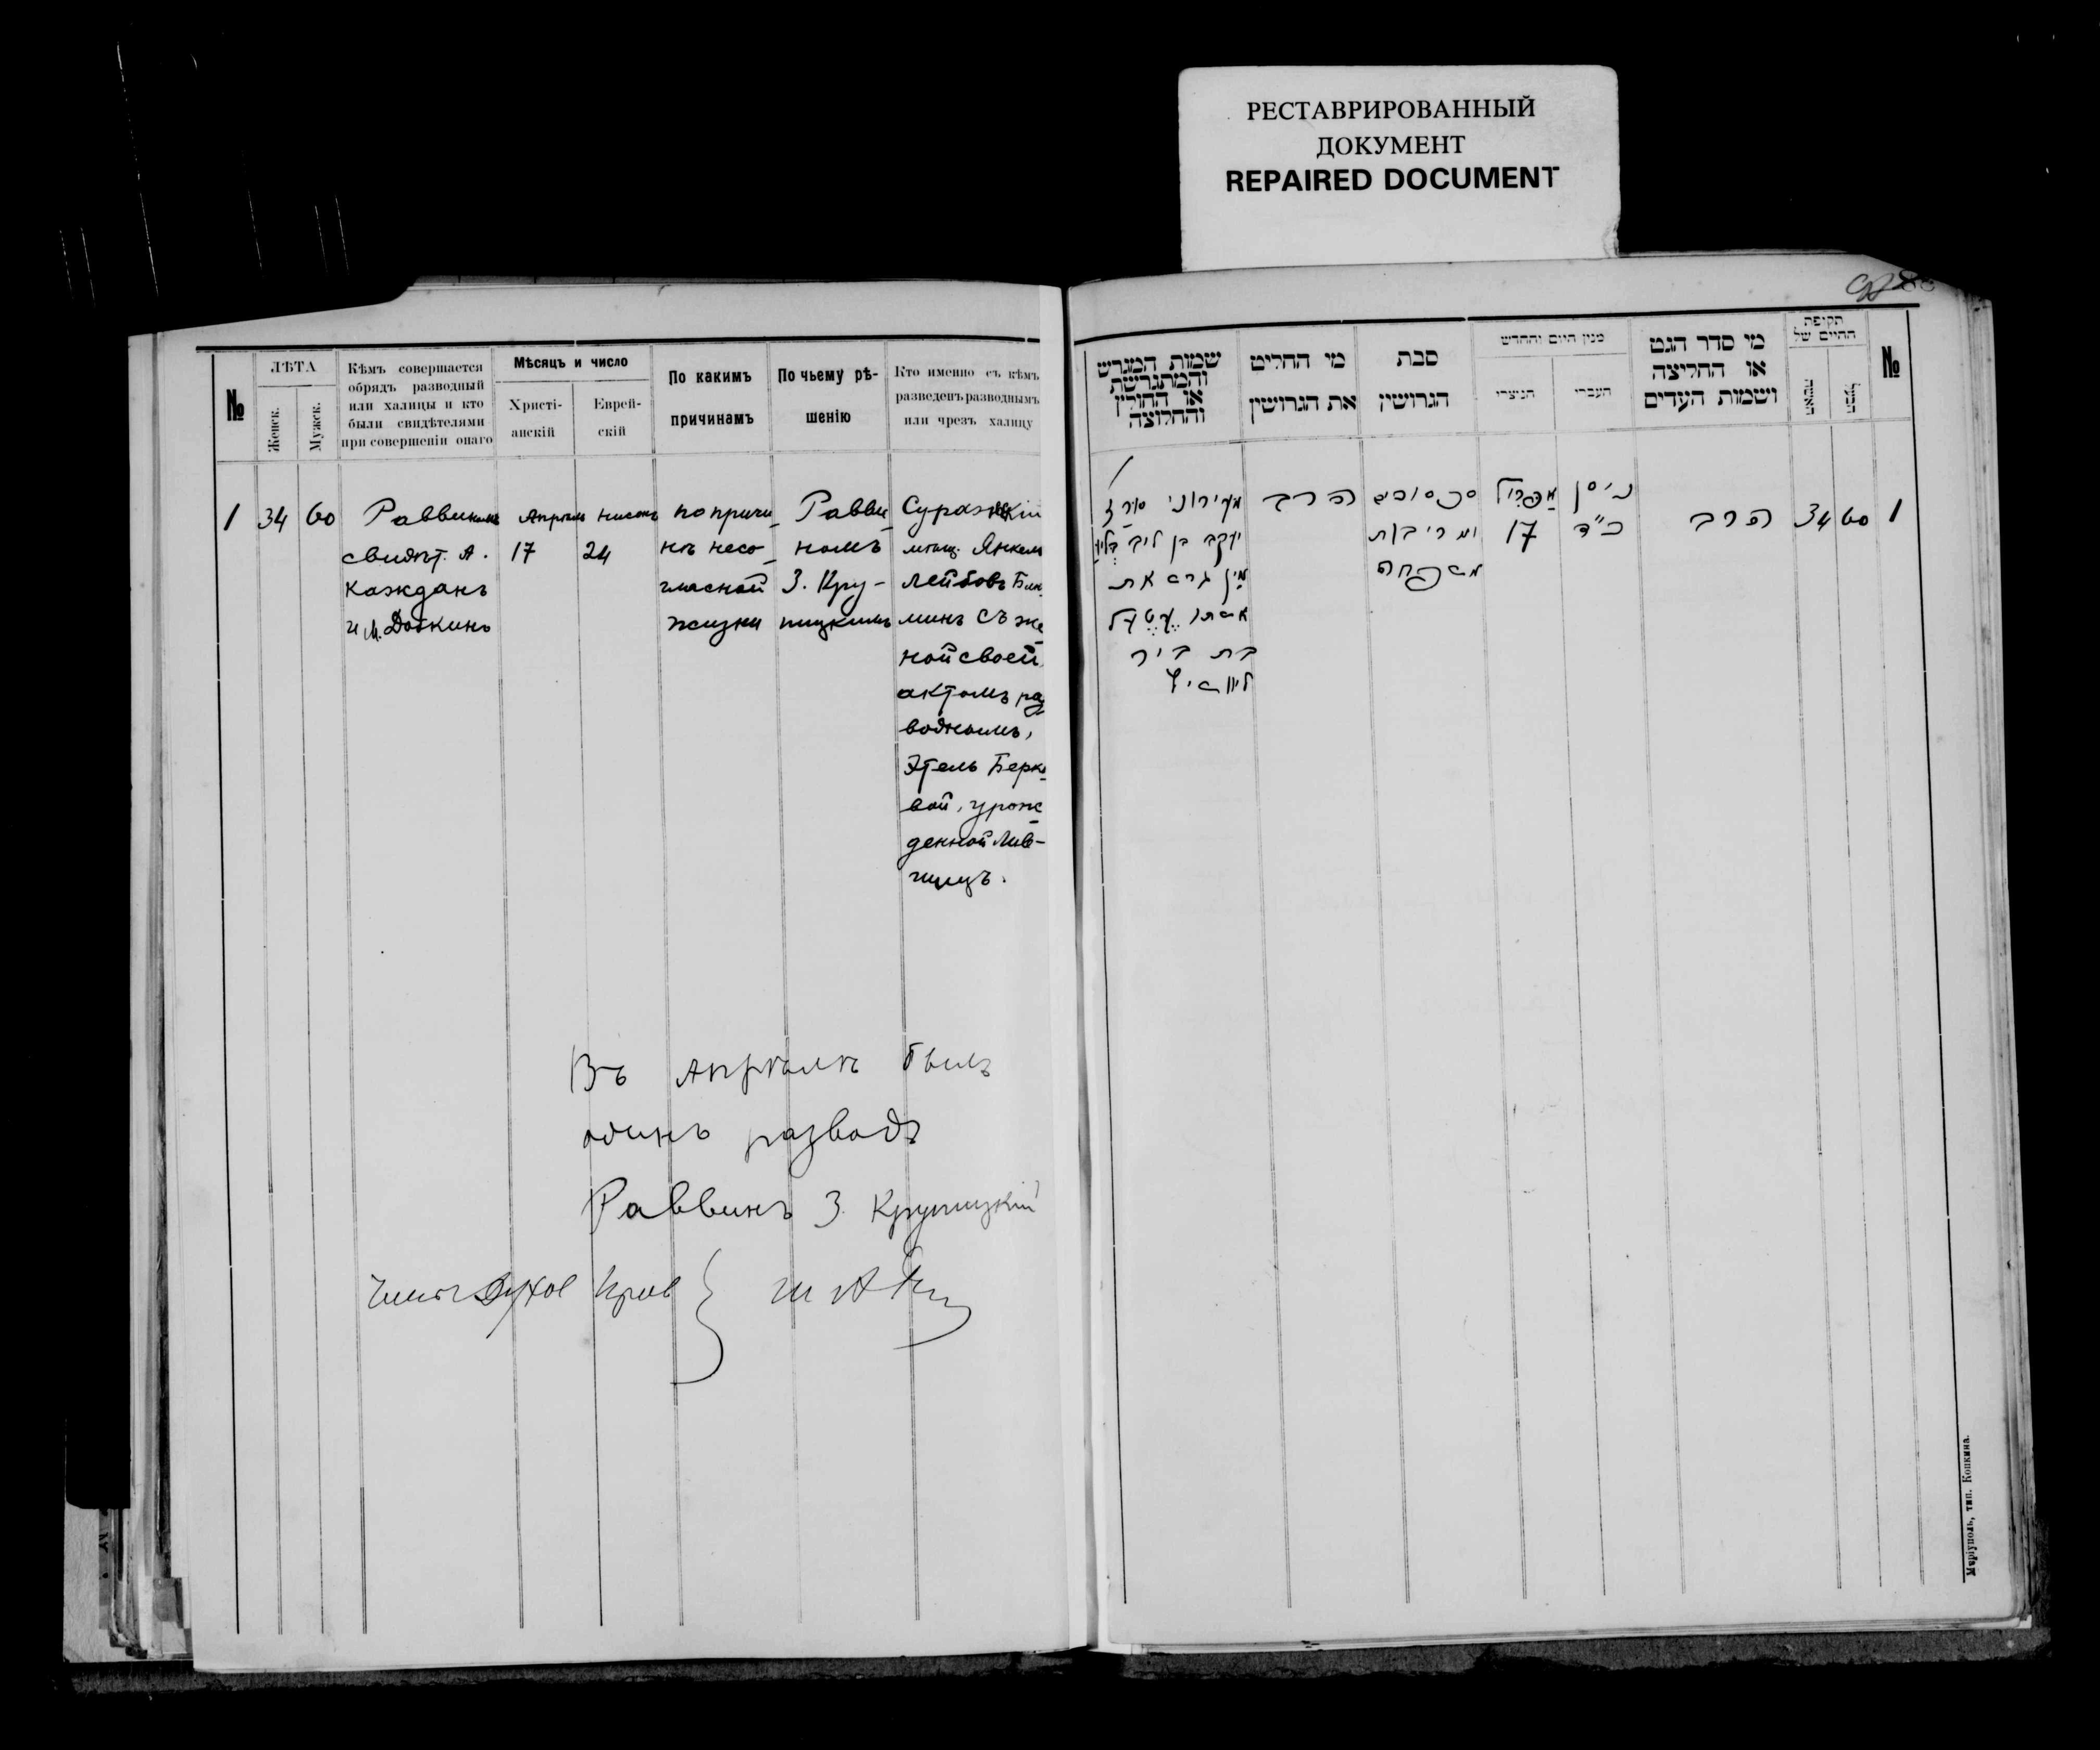 РЕСТАВРИРОВАННЫЙ
ДОКУМЕНТ
REPAIRED DOCUMENT
№
ЛѢТА
Женск.
Мужск.
Кѣмъ совершается
обрядъ разводный
или халицы и кто
были свидѣтелями
при совершеніи онаго
Мѣсяцъ и число
Христі-
анскій
Еврей-
скій
По какимъ
причинамъ
По чьему рѣ-
шенію
Кто именно съ кѣмъ
разведенъ разводнымъ
или чрезъ халицу
1
34
60
Раввиномъ
свидѣт. А.
Кажданъ
и М. Доткинъ
Апрѣль
17
Нисонъ
24
по причи
нѣ несо-
гласной
жизни
Равви
номъ
З. Кру-
пицкимъ
Суражскій
мѣщ. Янкель
Лейбовъ
минъ съ же
ной своей
актомъ раз
воднымъ,
Этель Берко
вой, урож
денной Лив-
шицъ.
Въ Апрѣлѣ былъ
одинъ разводъ
Раввинъ З. Крупицкій
שמות המגרש
והמתגרשת
או החולץ
והחלוצה
מי החליט
את הגרושין
סבת
הגרושין
מנין היום והחדש
הנוצרי
העברי
מי סדר הגט
או החליצה
ושמות העדים
תקופת
החיים של
№
יעקב בן ליב
מין גרש את
אשתו עטעל
בת בער
ליוושיץ
הרב
סכסוכים
ומריבות
משפחה
אפריל
17
ניסן
כ"ד
הרב
34
60
1
Маріуполь, тип. Копкина.